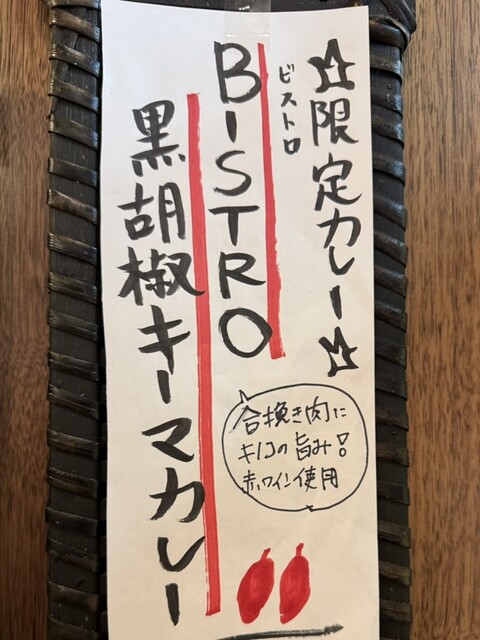 ☆限定カレー☆
ビストロ
BISTRO
黒胡椒キーマカレー
合挽き肉に
キノコの旨み!
赤ワイン使用